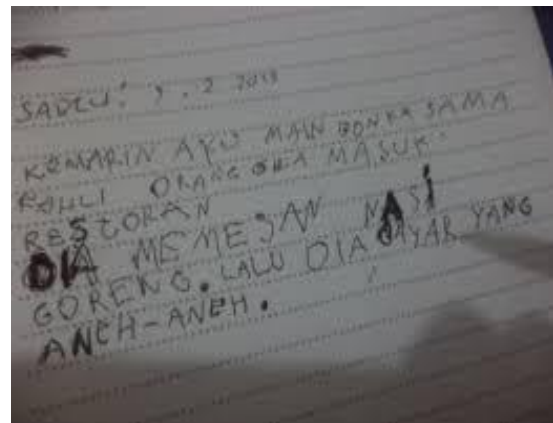 SABTU: 9. 2 2013
KEMARIN AYU MAIN BONEKA SAMA
ORANG MASUK
RESTORAN
DIA MEMESAN NASI
GORENG. LALU DIA BAYAR YANG
ANEH-ANEH.